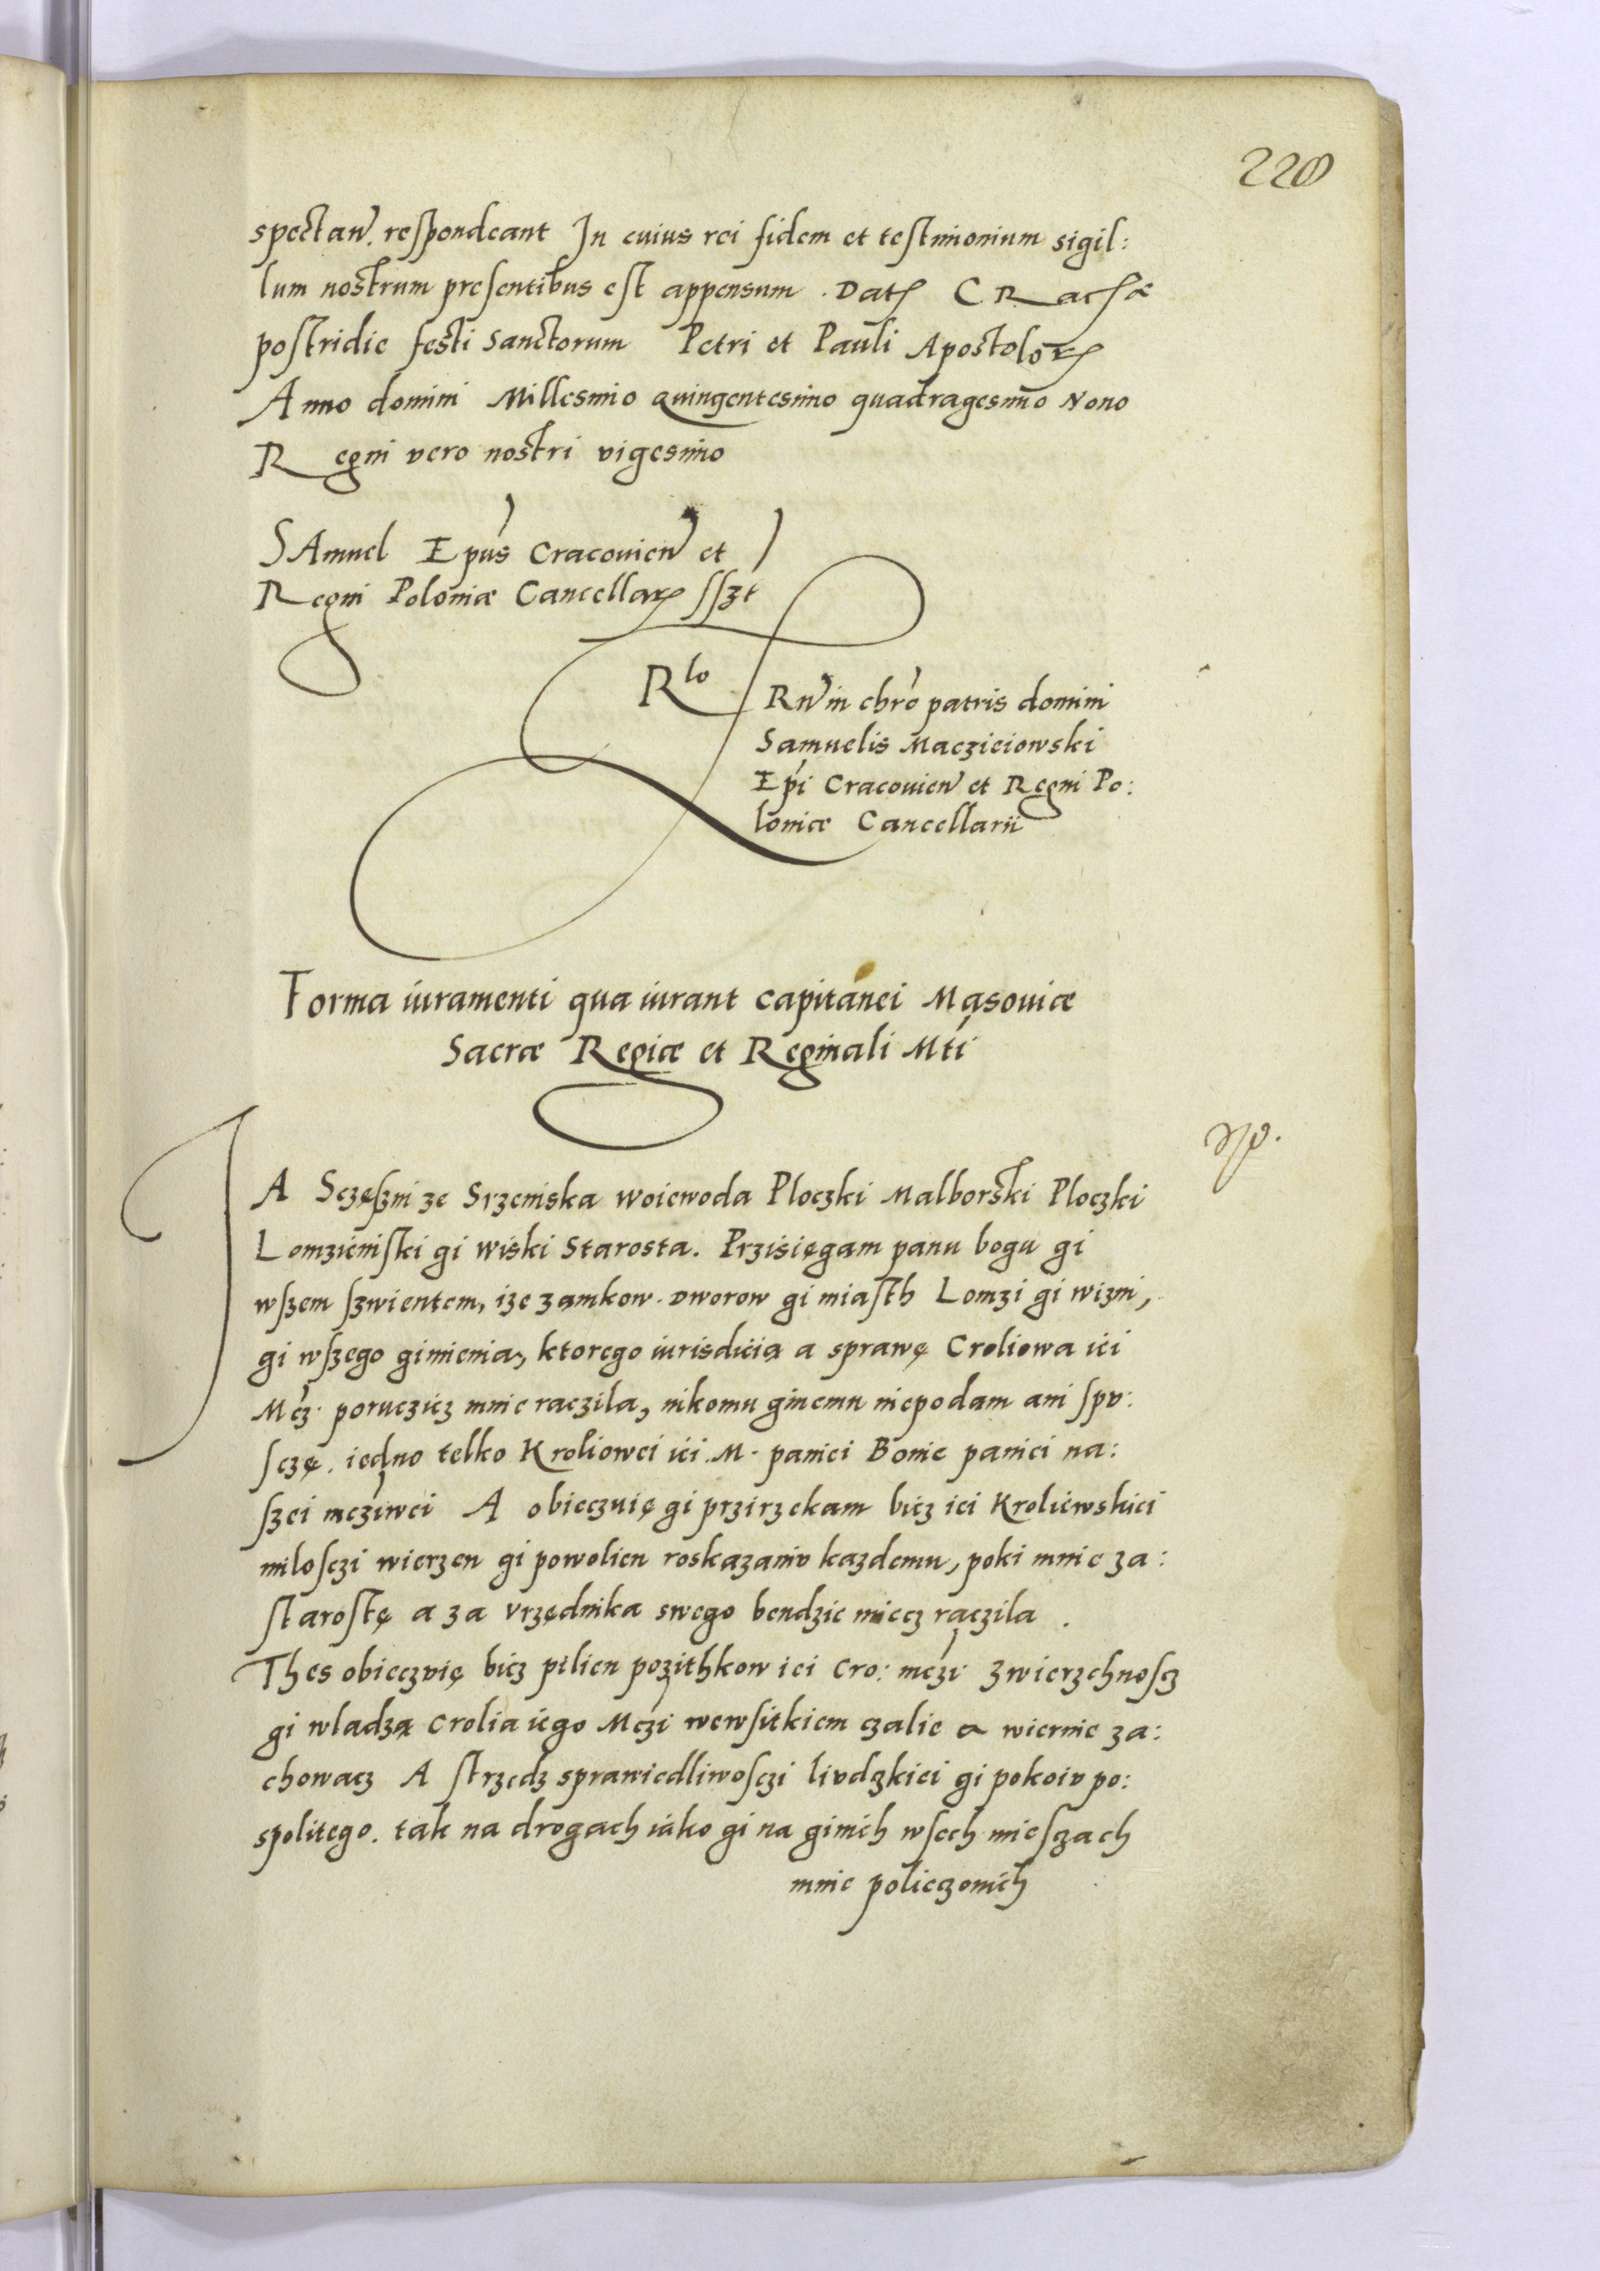 220
spectan. respondeant In cuius rei fidem et testimonium sigil:
lum nostrum presentibus est appensum. Dat Craco
postridie festi Sanctorum Petri et Pauli Apostolor
Anno domini Millesimo quingentesimo quadragesimo Nono
Regni vero nostri vigesimo
SAmuel Epus Cracovien et
Regni Poloniæ Cancellar sszt
Rlo Rn in chro patris domini
Samuelis Macziciowski
Epi Cracovien et Regni Po:
loniæ Cancellarii
Forma iuramenti qua iurant capitanei Masouiæ
Sacræ Regiæ et Reginali Mti
IA Sczęszni ze Srzenska woiewoda Ploczki Malborski Ploczki
Lomzienski gi wiski Starosta. Przisięgam panu bogu gi
wszem szwientem, ize zamkow. dworow gi miasth Lomzi gi wizni,
gi wszego gimienia, ktorego iurisdicią a sprawę Croliowa iei
Mcz. poruczicz mnie raczila, nikomu ginemu niepodam ani spu:
sczę. iedno telko Kroliowei iei. M. paniei Bonie paniei na:
szei mcziwei A obieczuię gi przirzekam bicz iei Kroliewskiei
milosczi wierzen gi powolien roskazaniv kazdemu, poki mnie za:
starostę a za vrzędnika swego bendzie miecz raczila.
Thes obieczvię bicz pilien pozithkow iei Cro: mczi zwierzchnoscz
gi wladzą Crolia iego Mczi wewsitkiem czalie a wiernie za:
chowacz A strzedz sprawiedliwosczi livdzkiei gi pokoiv po:
spolitego. tak na drogach iako gi na ginich wsech miesczach
mnie policzonich